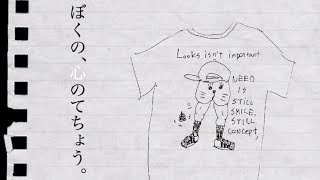 ぼくの、心のてちょう。
Looks isn't important
NEED
IS
STILL
SMILE,
STILL
CONCEPT